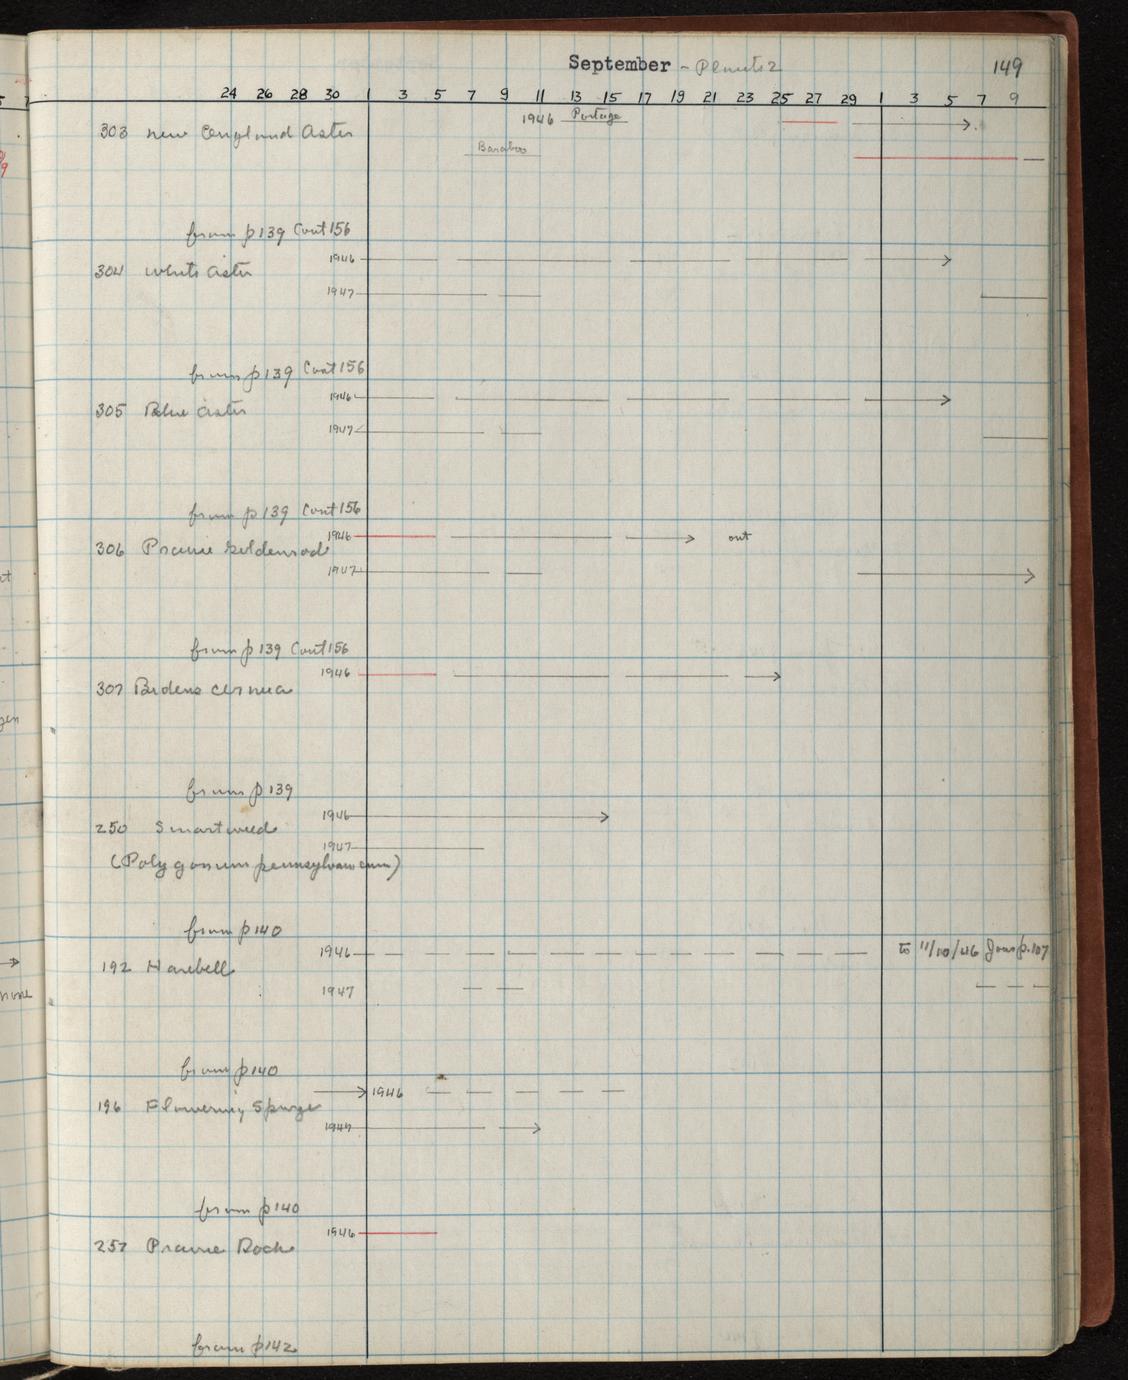 September - Plants 2 149
24 26 28 30 1 3 5 7 9 11 13 15 17 19 21 23 25 27 29 1 3 5 7 9
1946 Portage
303 New England Aster
Baraboo
from p 139 Cont 156
1946
304 White Aster
1947
from p 139 Cont 156
1946
305 Blue Aster
1947
from p 139 Cont 156
1946 out
306 Prairie Goldenrod
1947
from p 139 Cont 156
1946
307 Bidens cernua
from p 139
1946
250 Smartweed
1947
(Polygonum pennsylvanicum)
from p 140
1946 to 11/10/46 Jour p. 107
192 Harebell
1947
none
from p 140
1946
196 Flowering Spurge
1947
from p 140
1946
257 Prairie Dock
from p 142